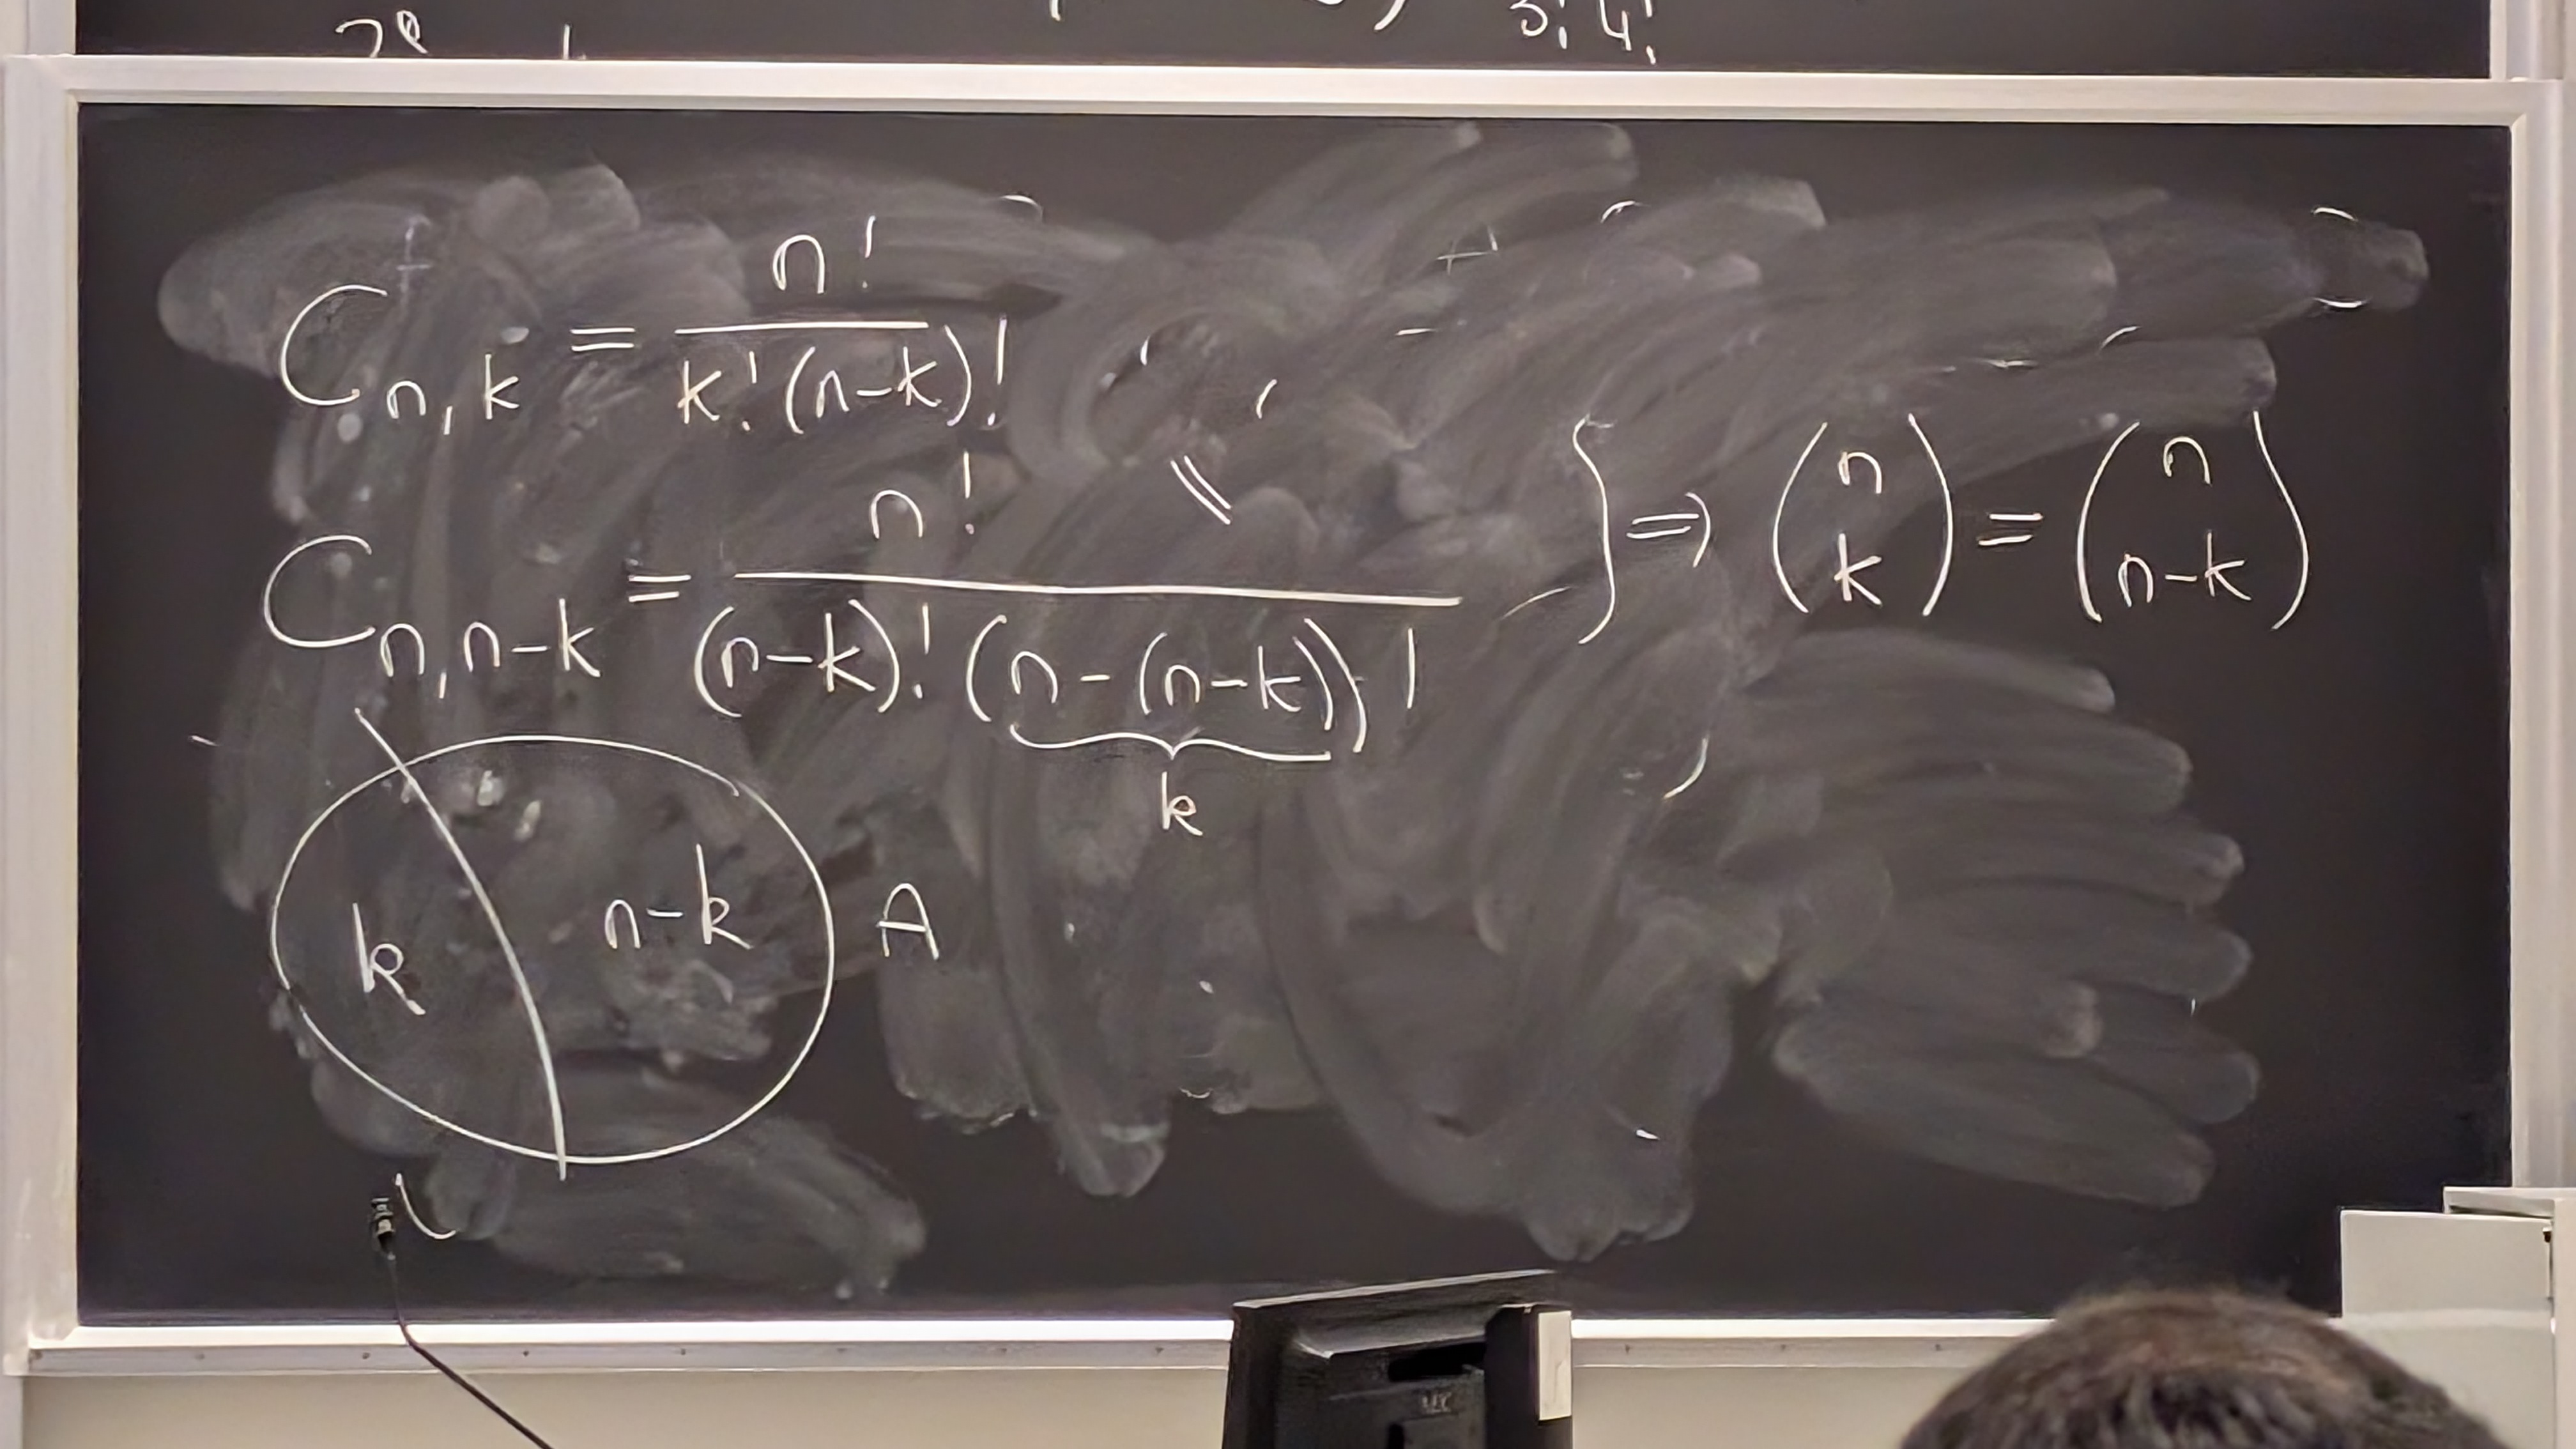 3! 4!
C_{n,k} = n! / k!(n-k)!
C_{n,n-k} = n! / (n-k)!(n-(n-k))! } ⇒ (n k) = (n n-k)
k
k n-k A